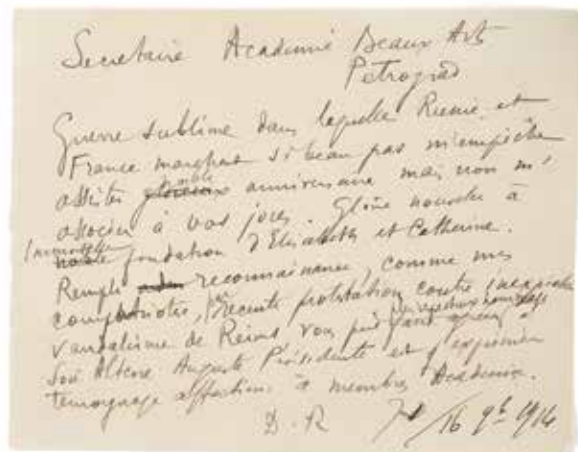 Secretaire Academie Beaux Arts
Petrograd
Guerre sublime dans laquelle Russie et
France marchent si beau pas m'empêche
assister glorieux noble anniversaire mais non m'
associer à vos joies. Gloire nouvelle à
Immortelle fondation d'Elisabeth et Catherine.
Remplis reconnaissance, comme mes
compatriotes, récente protestation contre
vandalisme de Reims vous prie faire agréer à
Son Altesse Auguste Présidente et exprimer
temoignage affection à membres Academie.
D. R 16 9b 1914